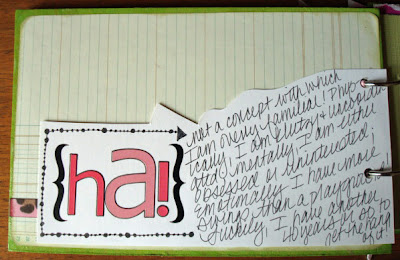 {ha!}
not a concept with which
I am overly familiar! Phys-
ically, I am klutzy + uncoordin-
ated; mentally, I am either
obsessed or uninterested;
Emotionally I have more
swings than a playground.
Luckily, I have another
40 years or so to
get the hang
of it!